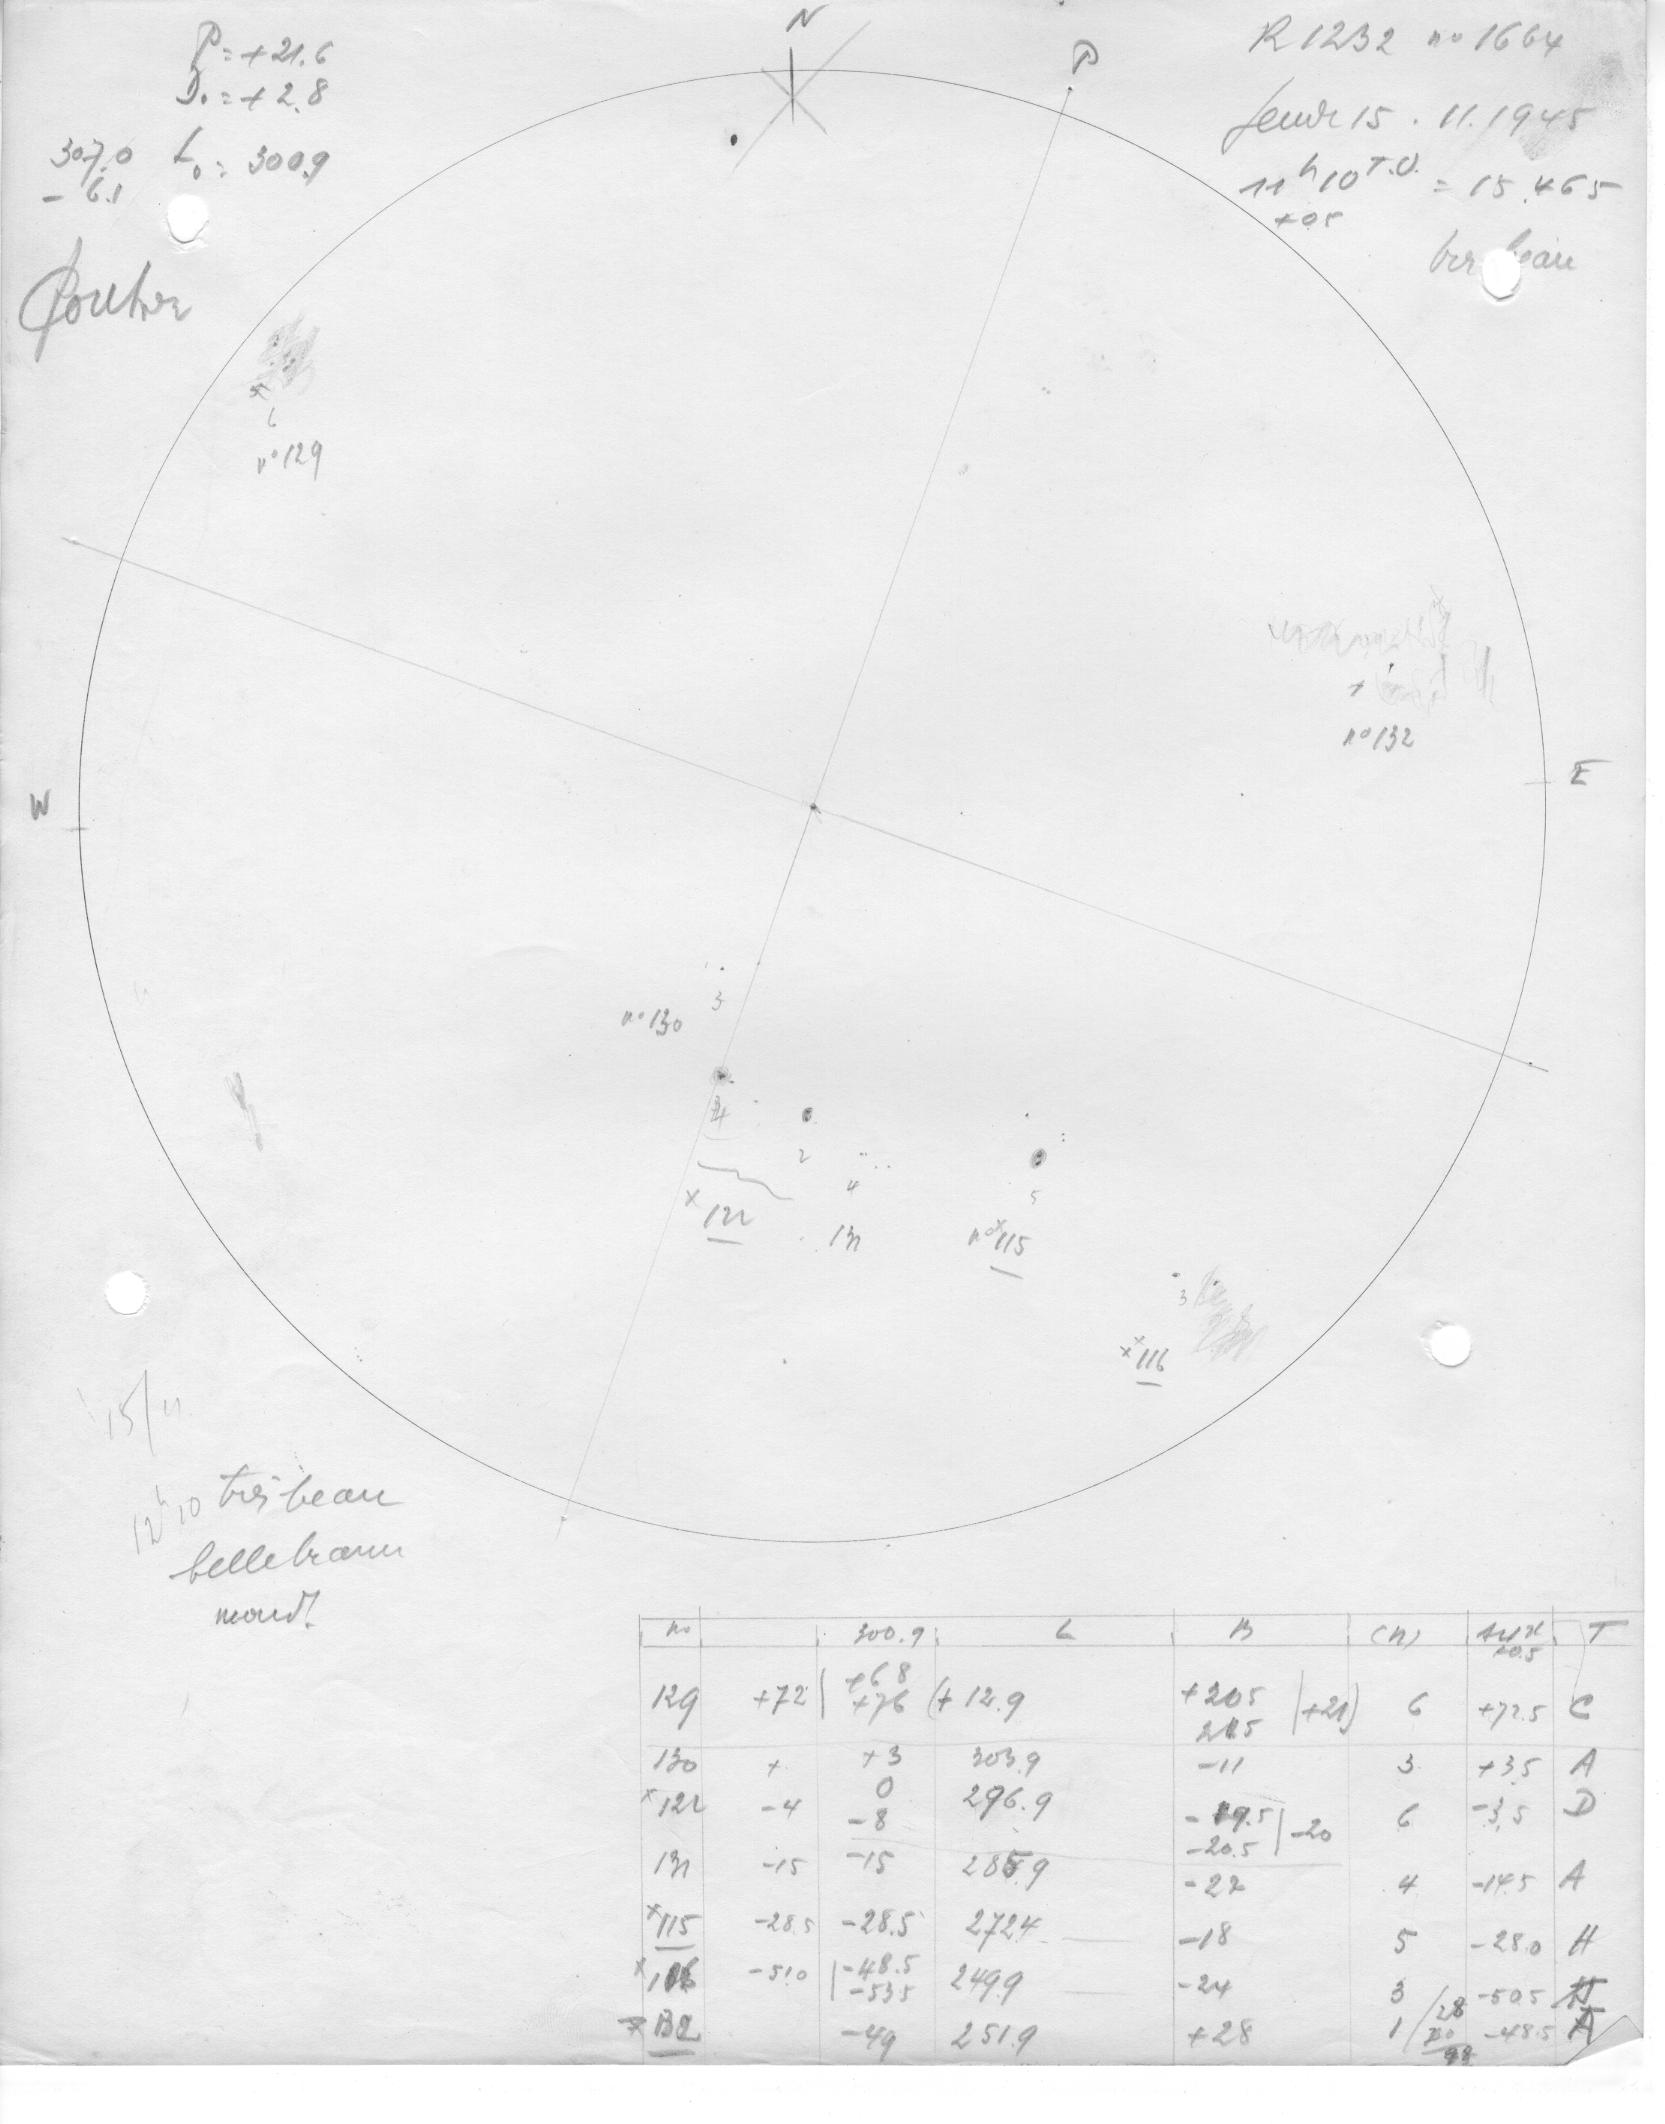 N
P = +21.6
P
R 1232 no 1664
D. = +2.8
Jeudi 15 . 11. 1945
307.0 L₀ = 300.9
- 6.1
11 h 10 T.U. = 15.465
+05
beau
n° 129
6
1
n° 132
W
E
3
n° 130
4
2
4
5
x 122
131
n° x 115
3
x 116
15/11
12h20 très beau
no 300.9 L B (n) T
129 +72 +68 +76 (+12.9 +205 215 +21) 6 +72.5 C
130 + +3 303.9 -11 3 +3.5 A
x 122 -4 0 -8 296.9 -19.5 -20.5 -20 6 -3.5 D
131 -15 -15 285.9 -22 4 -14.5 A
x 115 -28.5 -28.5 272.4 -18 5 -28.0 H
x 116 -51.0 -48.5 -53.5 249.9 -24 3 -50.5 H
132 -49 251.9 +28 1 28 70 98 -48.5 A